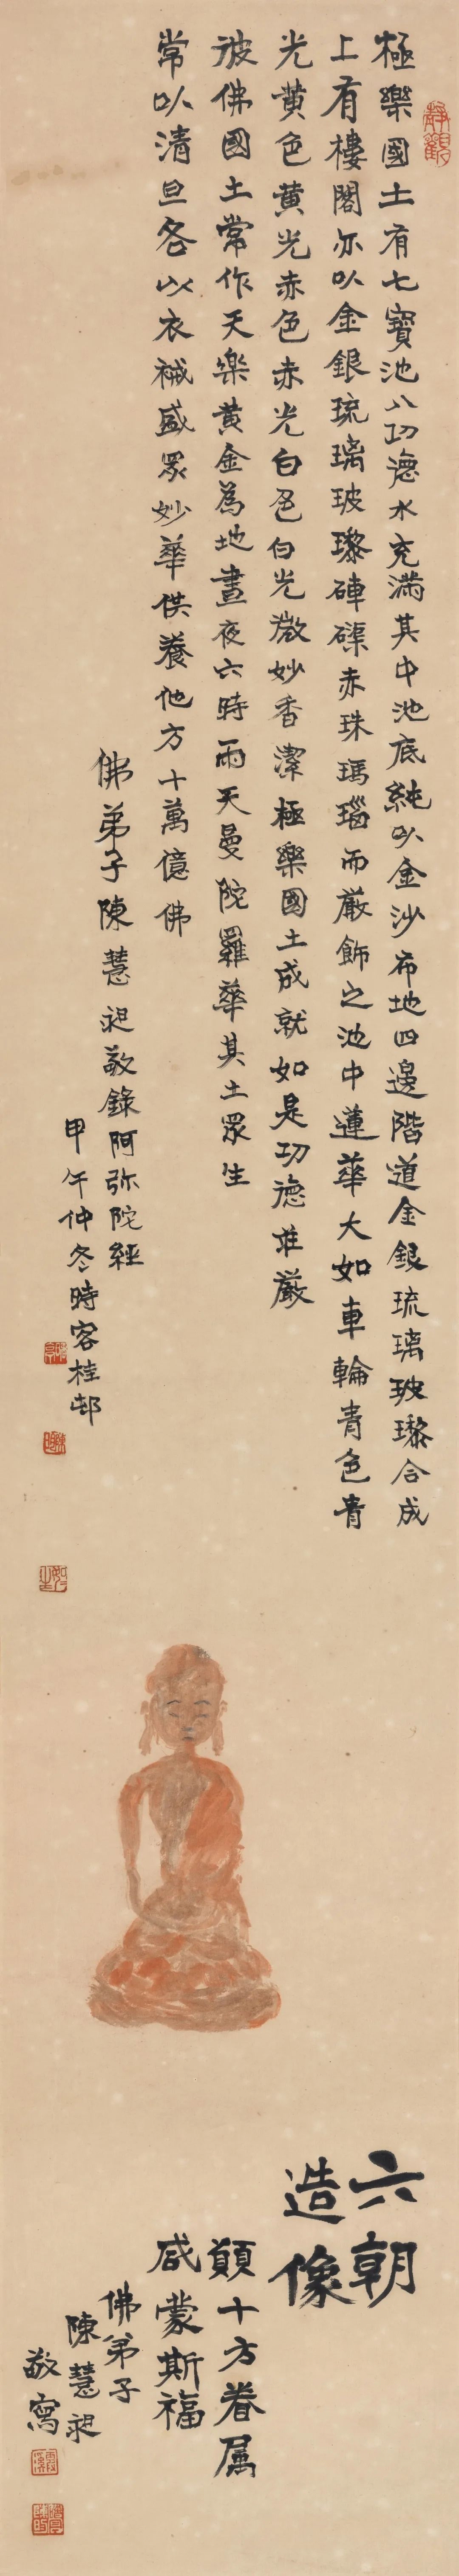 靜觀
極樂國土有七寶池八功德水充滿其中池底純以金沙布地四邊階道金銀琉璃玻瓈合成
上有樓閣亦以金銀琉璃玻瓈硨磲赤珠瑪瑙而嚴飾之池中蓮華大如車輪青色青
光黄色黄光赤色赤光白色白光微妙香潔極樂國土成就如是功德莊嚴
彼佛國土常作天樂黄金為地晝夜六時雨天曼陀羅華其土眾生
常以清旦各以衣祴盛眾妙華供養他方十萬億佛
佛弟子陳慧昶敬錄阿弥陀經
甲午仲冬時客桂邨
六朝
造像
願十方眷属
咸蒙斯福
佛弟子
陳慧昶
敬寫